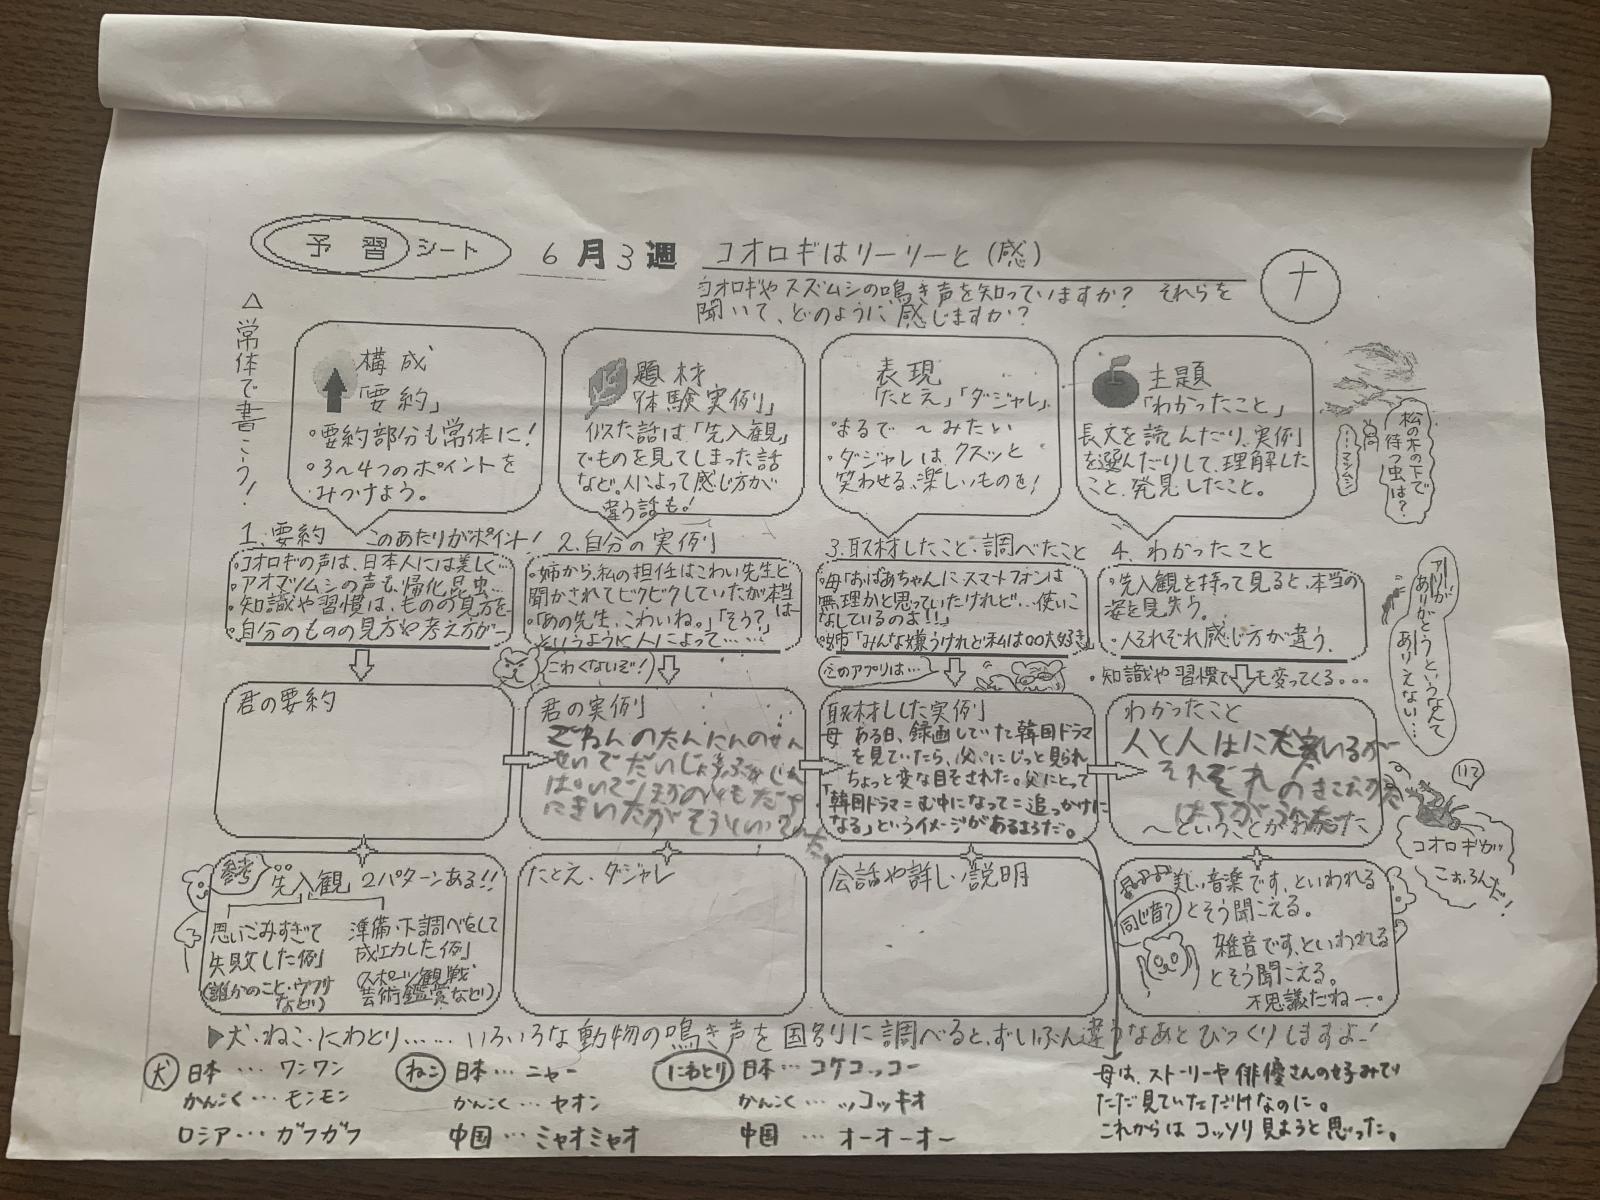 予習シート 6月3週 コオロギはリーリーと(感)
ナ
コオロギやスズムシの鳴き声を知っていますか? それらを
聞いて、どのように感じますか?
△常体で書こう!
構成
「要約」
・要約部分も常体に!
・3〜4つのポイントを
みつけよう。
題材
「体験実例」
似た話は「先入観」
でものを見てしまった話
など。人によって感じ方が
違う話も!
表現
「たとえ」「ダジャレ」
・まるで〜みたい
・ダジャレは クスッと
笑わせる、楽しいものを!
主題
「わかったこと」
長文を読んだり、実例
を選んだりして、理解した
こと、発見したこと。
松の木の下で
待つ虫は?
……マツムシ
1.要約 このあたりがポイント!
・コオロギの声は、日本人には美しく…
・アオマツムシの声も、帰化昆虫…
・知識や習慣は、ものの見方を…
・自分のものの見方や考え方が…
2.自分の実例
・姉から、私の担任はこわい先生と
聞かされてビクビクしていたが本当は
・「あの先生、こわいね。」「そう?」
というように人によって……
こわくないぞ!
3.取材したこと・調べたこと
・母「おばあちゃんに、スマートフォンは
無理かと思っていたけれど…使いこ
なしているのよ!!」
・姉「みんな嫌うけれど私は○○大好き」
このアプリは…
4.わかったこと
・先入観を持って見ると、本当の
姿を見失う。
・人それぞれ感じ方が違う。
・知識や習慣でも変ってくる...
アリが
ありがとうというなんて
ありえない…
君の要約
君の実例
取材しした実例
母 ある日、録画していた韓国ドラマ
を見ていたら、父にじっと見られ
ちょっと変な目をされた。父にとって
「韓国ドラマ=む中になって=追っかけに
なる」というイメージがあるようだ。
わかったこと
人と人は
それぞれの
〜ということがわかった
コオロギが
こおろんだ!
参考
先入観 2パターンある!!
思いこみすぎて
失敗した例
(誰かのこと・ウワサ
など)
準備・下調べをして
成功した例
(スポーツ観戦
芸術鑑賞など)
たとえ、ダジャレ
会話や詳しい説明
同じ音で
美しい音楽です、といわれる
とそう聞こえる。
雑音です、といわれる
とそう聞こえる。
不思議だねー。
▶犬・ねこ・にわとり……いろいろな動物の鳴き声を国別に調べると、ずいぶん違うなあとびっくりしますよ!
犬 日本…ワンワン
かんこく…モンモン
ロシア…ガフガフ
ねこ 日本…ニャー
かんこく…ヤオン
中国…ミャオミャオ
にわとり 日本…コケコッコー
かんこく…ッコッキオ
中国…オーオーオー
母は、ストーリーや俳優さんの好みで
ただ見ていただけなのに。
これからはコッソリ見ようと思った。